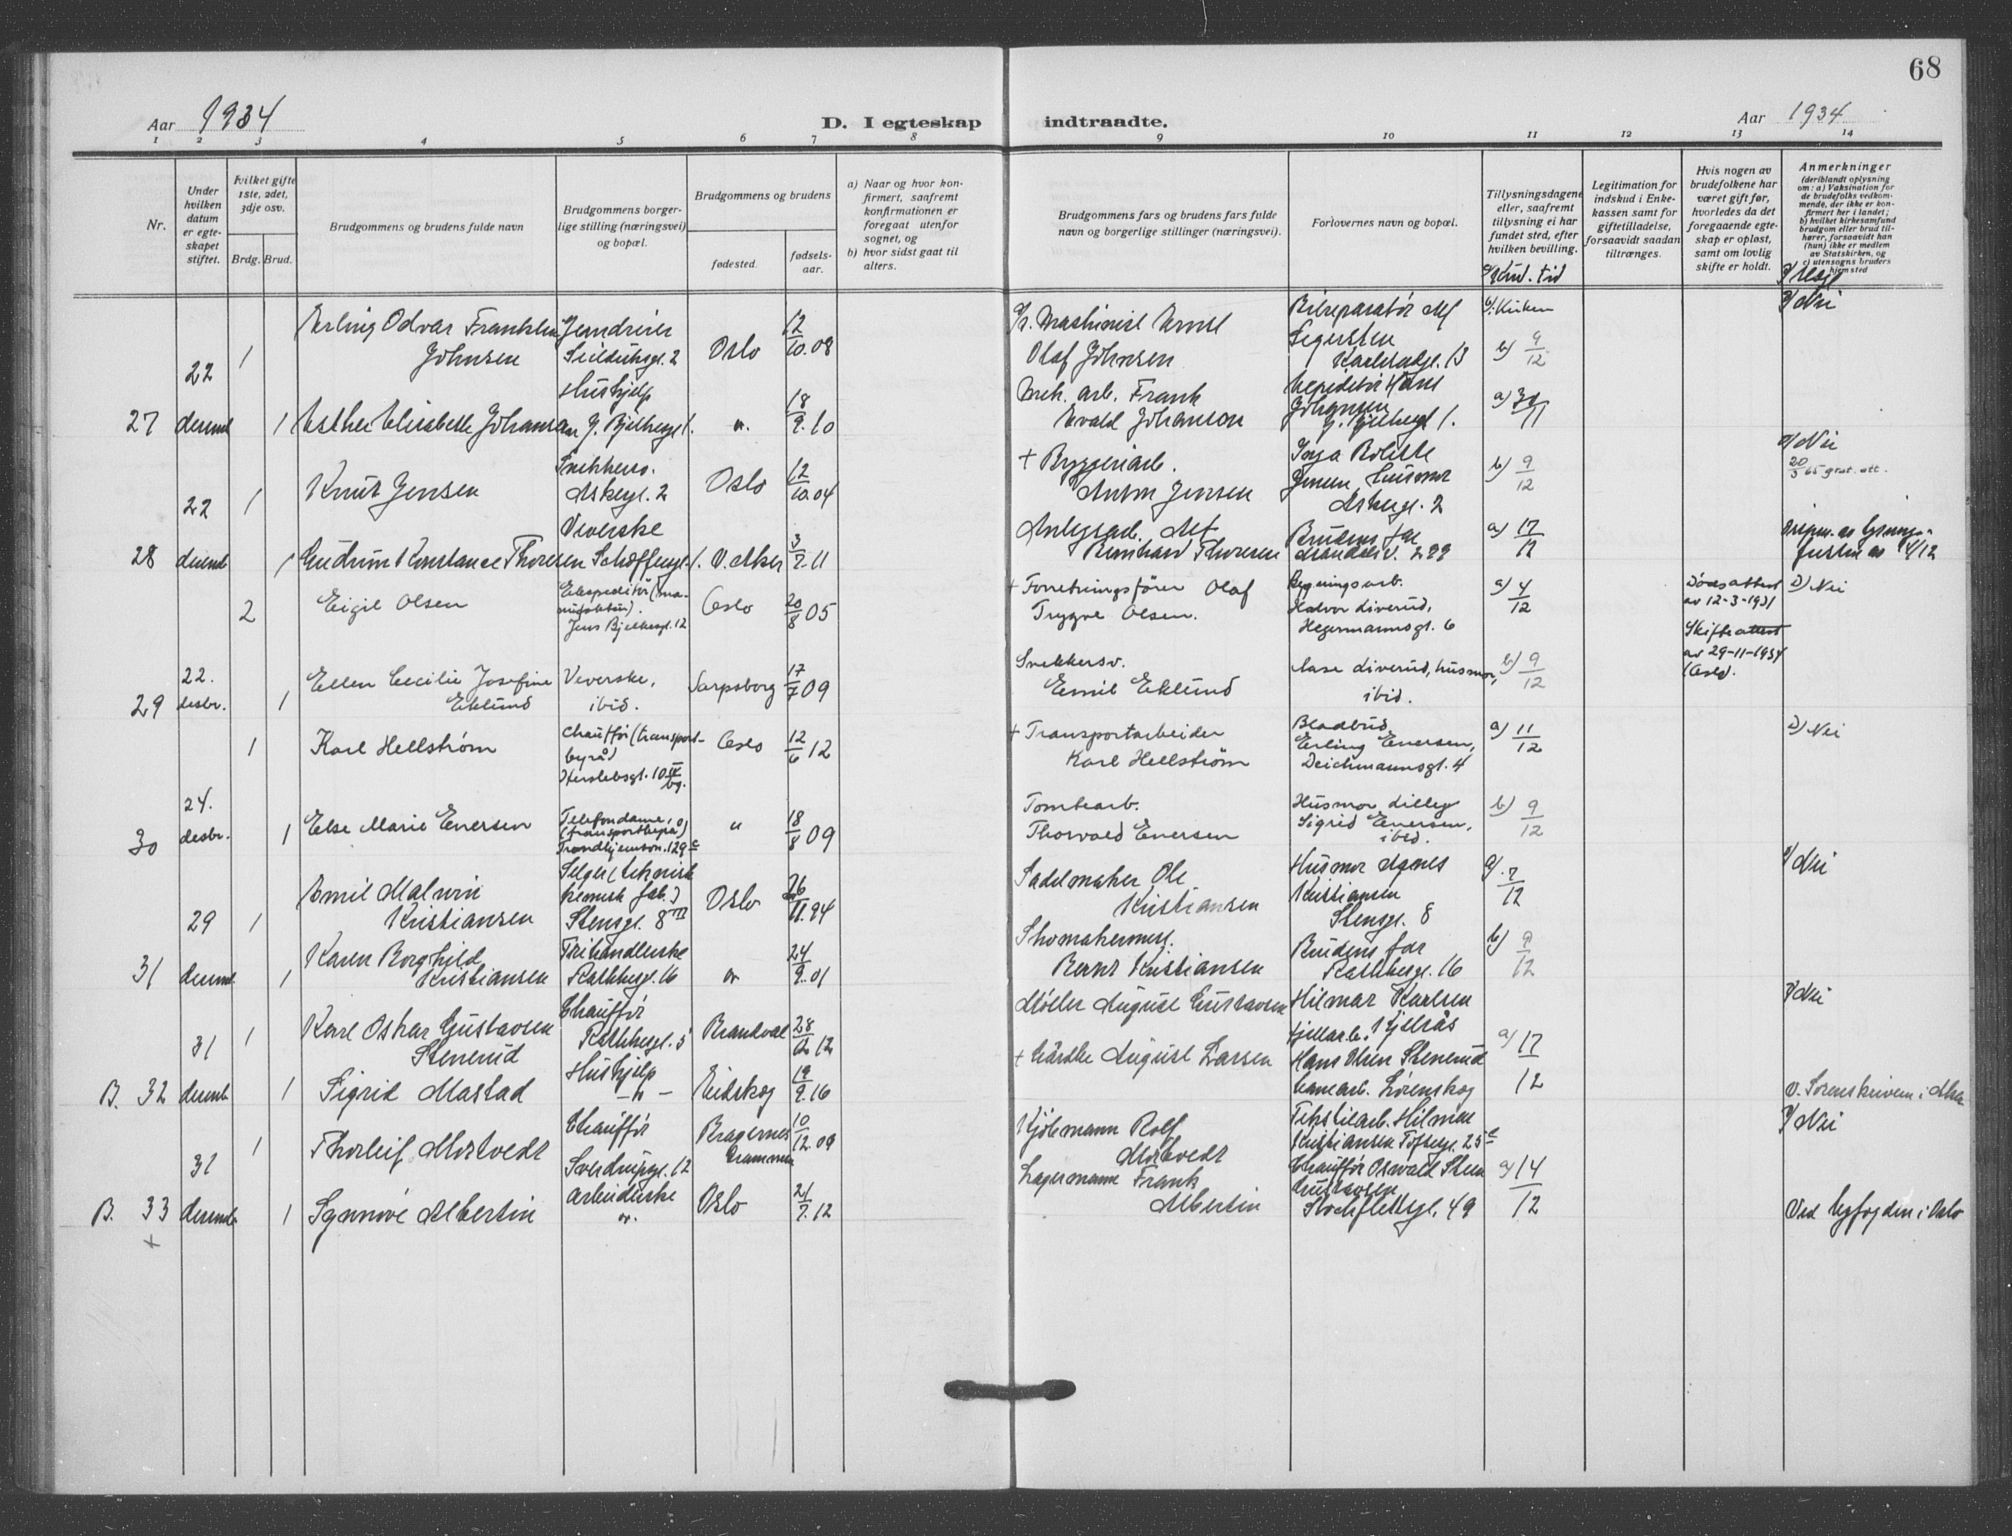 68
Aar 1934
D. I egteskap indtraadte.
Aar 1934
1 2 3 4 5 6 7 8 9 10 11 12 13 14
Nr.
Under hvilken datum er egteskapet stiftet.
Hvilket gifte 1ste, 2det, 3dje osv.
Brdg. Brud.
Brudgommens og brudens fulde navn
Brudgommens borgerlige stilling (næringsvei) og bopæl.
Brudgommens og brudens
fødested. fødselsaar.
a) Naar og hvor konfirmert, saafremt konfirmationen er foregaat utenfor sognet, og
b) hvor sidst gaat til alters.
Brudgommens fars og brudens fars fulde navn og borgerlige stillinger (næringsvei).
Forlovernes navn og bopæl.
Tillysningsdagene eller, saafremt tillysning ei har fundet sted, efter hvilken bevilling.
Legitimation for indskud i Enkekassen samt for giftetilladelse, forsaavidt saadan tiltrænges.
Hvis nogen av brudefolkene har været gift før, hvorledes da det foregaaende egteskap er opløst, samt om lovlig skifte er holdt.
Anmerkninger
(deriblandt oplysning om: a) Vaksination for de brudefolks vedkommende, der ikke er konfirmert her i landet; b) hvilket kirkesamfund brudgom eller brud tilhører, forsaavidt han (hun) ikke er medlem av Statskirken, og c) utensogns bruders hjemsted
27 22 desemb 1
Erling Odvar Franklin Johnsen
Oslo 12/10.08
Olaf Johnsen
b) 9/12
Nei
1 Esther Elisabeth Johanson
Hushjelp
G. Bjelkesgt. 1.
18/9.10
Mek. arb. Frank Evald Johanson
a) 30/11
28 22 desemb 1
Knut Jensen
Snekkersv.
Askergt. 2
Oslo 12/10.04
+ Bryggeriarb. Anton Jensen
Jensen, Husmor
Askergt. 2
b) 9/12
Nei
1 Gudrun Konstanse Thoresen
Veverske
V. Aker 3/7.11
Bernhard Thoresen
Brudens far
a) 17/11
29 22. desbr. 2
Eigil Olsen
Ekspeditør (manufaktur).
Jens Bjelkesgt. 12
Oslo 20/8 05
+ Forretningsfører Olaf Trygve Olsen.
Bygningsarb. Halvor Liverud,
Hegermannsgt. 6
a) 4/12
Dødsattest av 12-3-1931
Skifteattest av 29-11-1934 (Oslo).
2) Nei
1 Ellen Cecilie Josefine Eklund
Veverske, ibid.
Sarpsborg 17/7 09
Snekkersv. Emil Eklund
Aase Liverud, husmor, ibid.
b) 9/12
30 24. desbr. 1
Karl Hellstrøm
Chauffør (transportbyrå)
Herslebsgt. 10 IV bg.
Oslo 12/6 12
+ Transportarbeider Karl Hellstrøm
Bladbud Erling Enersen,
Deichmannsgt. 4
a) 11/12
2) Nei
1 Else Marie Enersen
Telefondame, (transportbyrå)
Trondhjemsvn. 129 c
" 18/8 09
Tomtearb. Thorvald Enersen
Husmor Lilley Sigrid Enersen, ibid.
b) 9/12
31 29 desemb 1
Emil Malvin Kristiansen
Selger (teknisk kemisk fab.)
Stensgt. 8 III
Oslo 26/11.94
Sadelmaker Ole Kristiansen
Husmor Agnes Kristiansen
Stensgt. 8
a) 7/12
Nei
1 Karen Borghild Kristiansen
Rathkesgt. 16
24/9.01
Skomakermest. Bernt Kristiansen
Brudens far
Rathkesgt. 16
b) 9/12
B. 32 31 desemb 1
Karl Oskar Gustavsen Stenerud
Chauffør
Rathkesgt. 5
Brandval 28/12 12
Møller August Gustavsen
Hilmar Karlsen
fjellarb. Kjelsås
a) 17/12
Nei
1 Sigrid Mastad
Hushjelp
Eidskog 19/9.16
+ Gårdbr August Larsen
Hans Olsen Stenerud
Lørenskog
v. Sorenskriveren i Aker
B. 33 31 desemb 1
Thorleif Mostvedt
Chauffør
Sverdrupsgt. 12
Bragernes Drammen 10/12 09
Kjøbmann Rolf Mostvedt
Tekstilarb. Hilmar Kristiansen Toftesgt. 25 c
a) 14/12
Nei
1 Synnøve Albertin
Arbeiderske
Oslo 21/7.12
Lagermann Frank Albertin
Chauffør Osvald Sten Gustavsen
Stockflethsgt. 49
Ved byfogden i Oslo